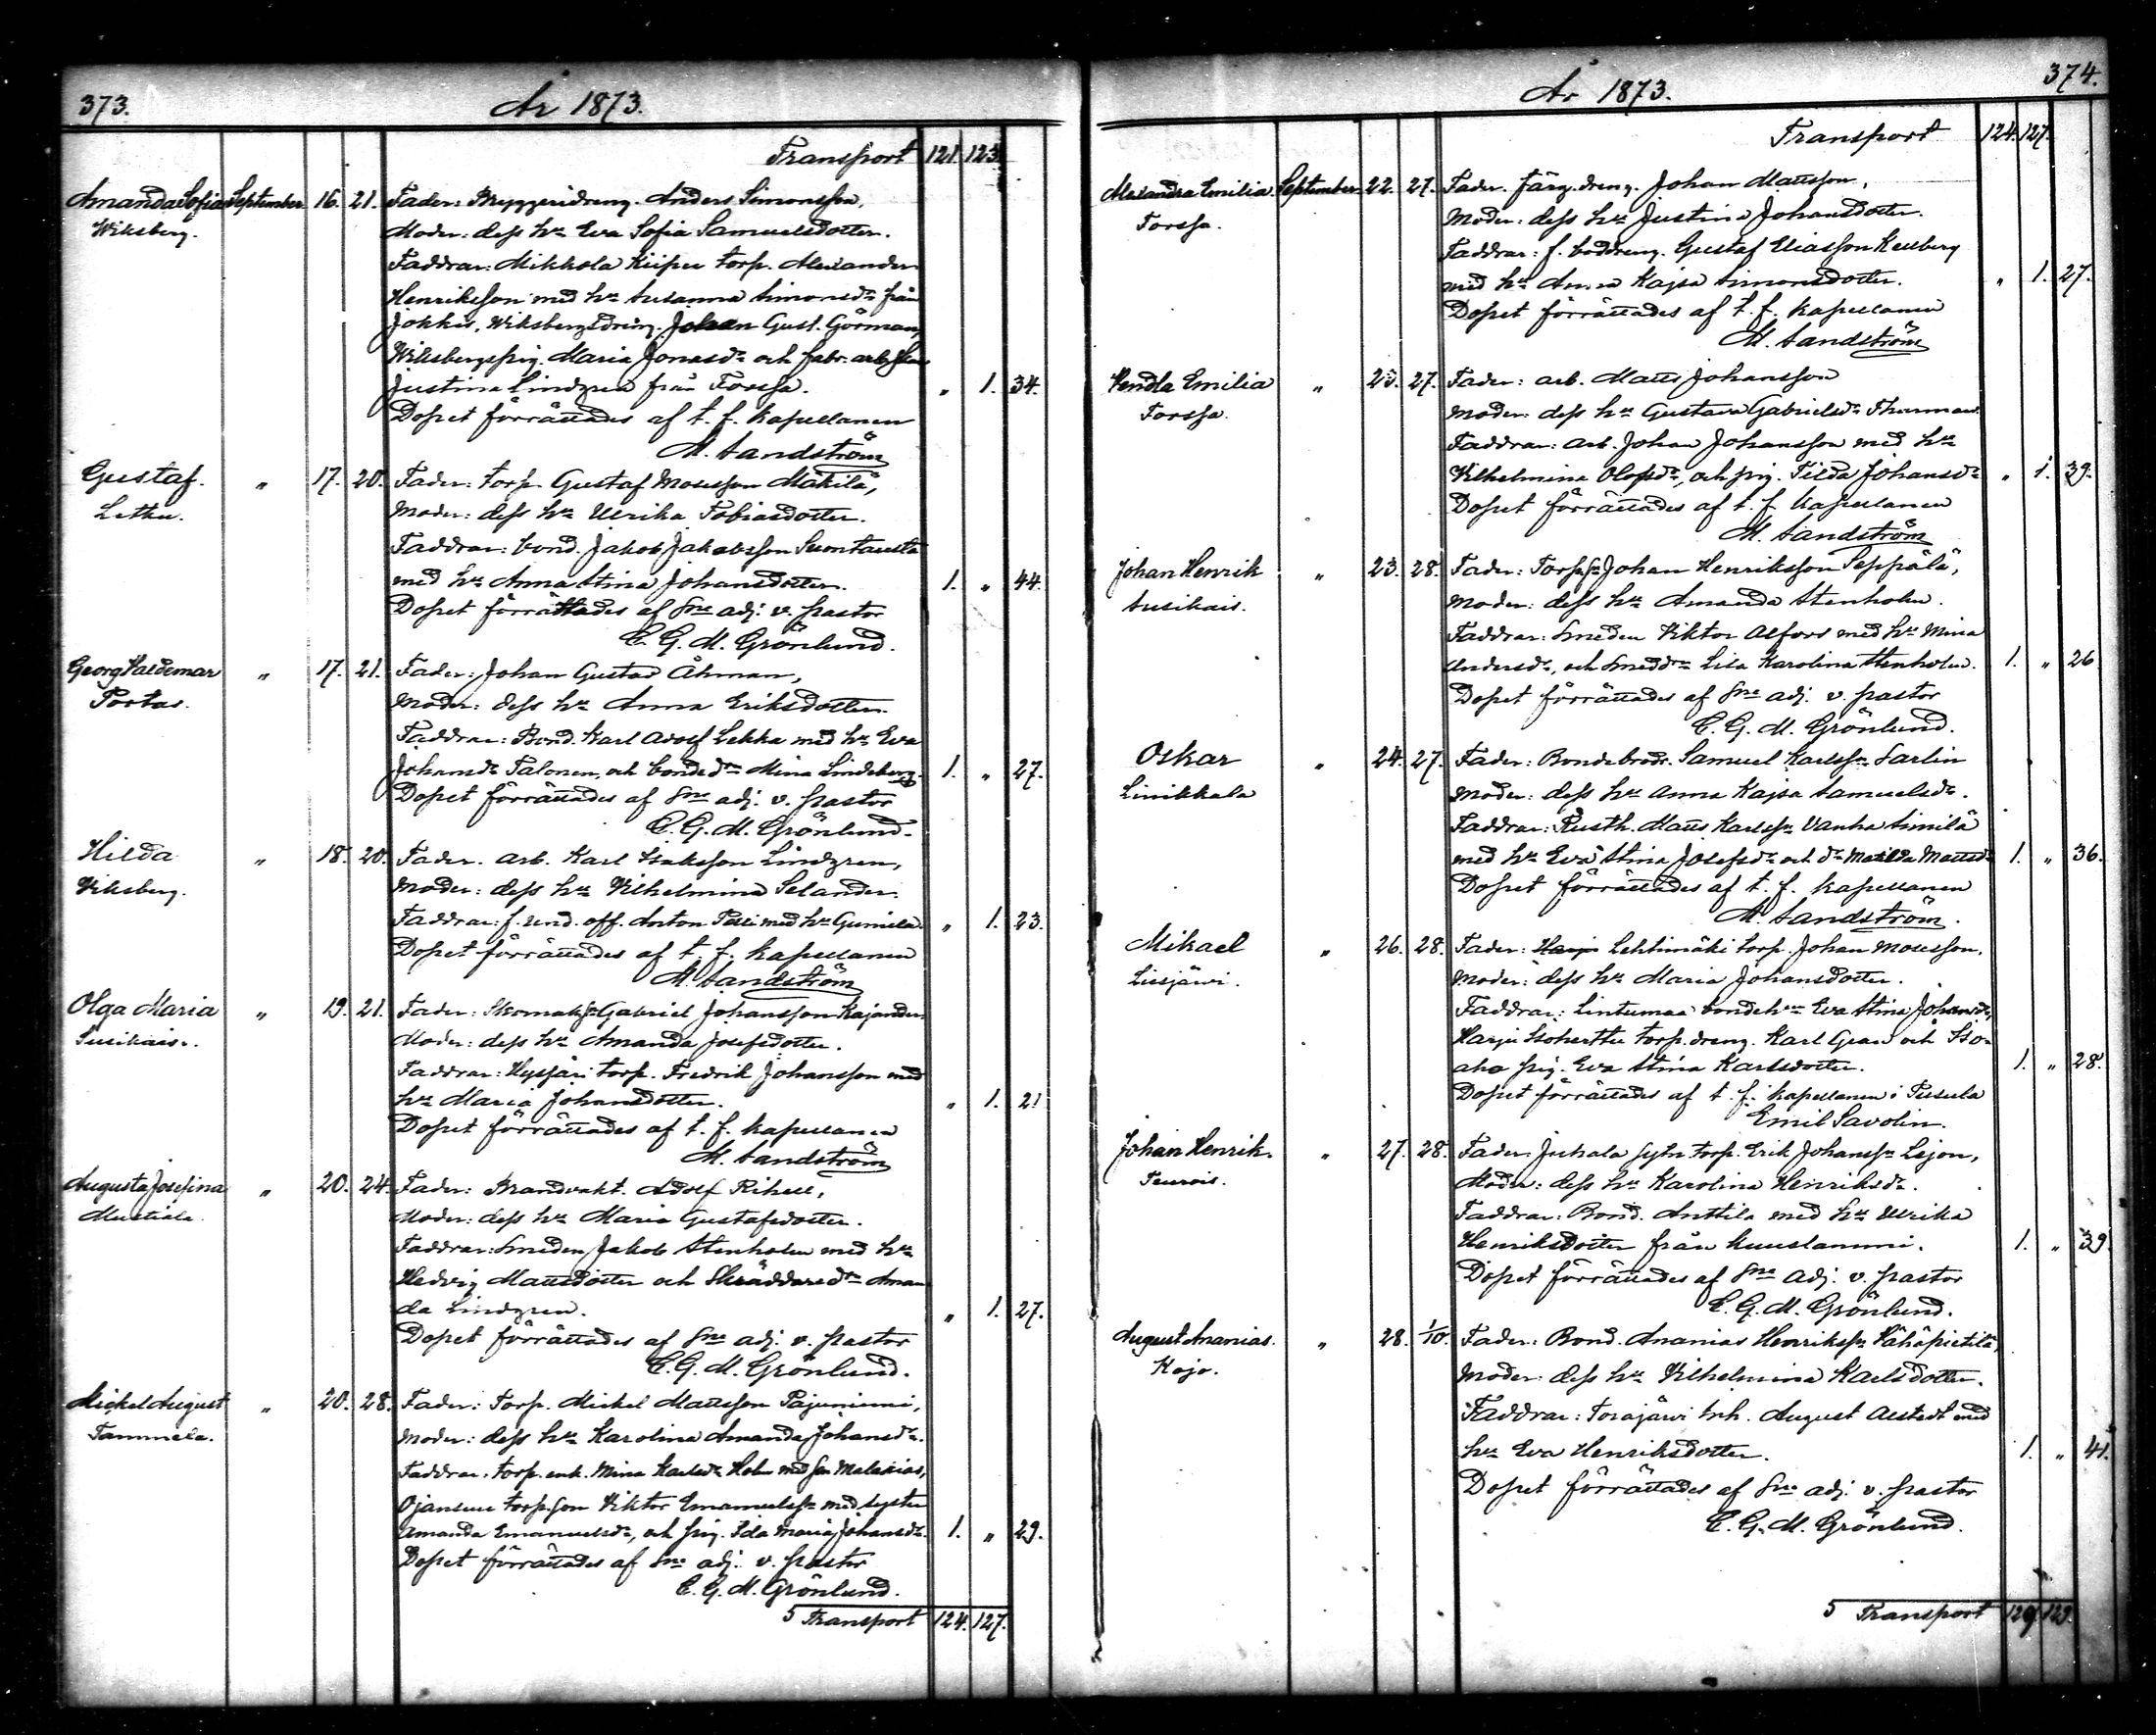 373.
År 1873.
Transport 121. 123.
Amanda Sofia September 16. 21. Fader: Bryggeridreng. Anders Simonsson,
Wiksberg. Moder: dess hu Eva Sofia Samuelsdotter.
Faddrar: Mikkola Kiipu torp. Alexander
Henriksson med hu Susanna Simonsdr från
Jokkis, Wiksbergsdräng. Johan Gust. Görman,
Wiksbergspig. Maria Jonasdr och fabr. arb.
Justina Lindgren från Forssa. " 1. 34.
Dopet förrättades af t. f. kapellanen
M. Sandström
Gustaf. " 17. 20. Fader: torp. Gustaf Mosesson Mäkilä,
Letku. Moder: dess hu Ulrika Tobiasdotter.
Faddrar: bond. Jakob Jakobsson Suontausta
med hu Anna Stina Johansdotter. 1. " 44.
Dopet förrättades af Sne adj. v. pastor
E. G. M. Grönlund.
Georg Valdemar " 17. 21. Fader: Johan Gustav Åhman,
Portas. Moder: dess hu Anna Eriksdotter.
Faddrar: Bond. Karl Adolf Lekka med hu Eva
Johansdr Talonen, och bondedr Mina Lindeberg. 1. " 27.
Dopet förrättades af Sne adj. v. pastor
E. G. M. Grönlund.
Hilda " 18. 20. Fader. arb. Karl Isaksson Lindgren,
Viksberg. Moder: dess hu Vilhelmina Selander.
Faddrar: f. und. off. Anton med hu Gunilla " 1. 23.
Dopet förrättades af t. f. kapellanen
M. Sandström
Olga Maria " 19. 21. Fader: Skomak. Gabriel Johansson Kajander.
Susikais. Moder: dess hu Amanda Josefsdotter.
Faddrar: torp. Fredrik Johansson med
hu Maria Johansdotter. " 1. 21
Dopet förrättades af t. f. kapellanen
M. Sandström
Augusta Josefina " 20. 24. Fader: Brandvakt. Adolf Rihell,
Mustiala. Moder: dess hu Maria Gustafsdotter.
Faddrar: Smeden Jakob Stenholm med hu
Hedvig Mattsdotter och Skräddaredr Aman
da Lindgren. " 1. 27.
Dopet förrättades af Sne adj. v. pastor
E. G. M. Grönlund.
Mickel August " 20. 28. Fader: Torp. Mickel Mattsson Pajuniemi,
Tammela. Moder: dess hu Karolina Amanda Johansdr.
Faddrar: torp. enk. Mina Karlsdr Holm med son Malakias,
Ojansuu torp. son Viktor Emanuelsson med syster
Amanda Emanuelsdr, och pig. Ida Maria Johansdr. 1. " 29.
Dopet förrättades af Sne adj. v. pastor
E. G. M. Grönlund.
5 Transport 124. 127.
374.
År 1873.
Transport 124. 127.
Alexandra Emilia. September 22. 27. Fader. färg. dreng. Johan Mattsson,
Forssa. Moder: dess hu Justina Johansdotter.
Faddrar: f. boddreng. Gustaf Eliasson Kellberg
med hu Anna Kajsa Simonsdotter. " 1. 27.
Dopet förrättades af t. f. kapellanen
M. Sandström
Vendla Emilia " 23. 27. Fader: arb. Matts Johansson
Forssa. Moder: dess hu Gustava Gabrielsdr Thurman.
Faddrar: arb. Johan Johansson med hu
Vilhelmina Olofsdr, och pig. Tilda Johansdr " 1. 39.
Dopet förrättades af t. f. kapellanen
M. Sandström
Johan Henrik " 23. 28. Fader: Torp. Johan Henriksson Seppälä,
Susikais. Moder: dess hu Amanda Stenholm.
Faddrar: Smeden Viktor Alfors med hu Mina
Andersdr, och Smeddr Lisa Karolina Stenholm. 1. " 26
Dopet förrättades af Sne adj. v. pastor
E. G. M. Grönlund.
Oskar " 24. 27. Fader: Bondebrodr. Samuel Karlsson Sarlin
Linikkala Moder: dess hu Anna Kajsa Samuelsdr.
Faddrar: Rusth. Matts Karlsson Vanha Simila
med hu Eva Stina Josefsdr och dr Matilda Mattsdr 1. " 36.
Dopet förrättades af t. f. kapellanen
M. Sandström.
Mikael " 26. 28. Fader: Lehtimäki torp. Johan Mosesson.
Liesjärvi. Moder: dess hu Maria Johansdotter.
Faddrar: Lintumaa bondehu Eva Stina Johansdr,
Harju torp. dreng. Karl Gran och Iso-
aho pig. Eva Stina Karlsdotter. 1. " 28.
Dopet förrättades af t. f. kapellanen i Tusula
Emil Savolin.
Johan Henrik. " 27. 28. Fader. Juhala sytn. torp. Erik Johansson Lejon,
Teurois. Moder: dess hu Karolina Henriksdr.
Faddrar: Bond. Anttila med hu Ulrika
Henriksdotter från Kuuslammi. 1. " 39.
Dopet förrättades af Sne adj. v. pastor
E. G. M. Grönlund.
August Ananias. " 28. 1/10. Fader: Bond. Ananias Henriksson Vähäpietilä,
Kojo. Moder: dess hu Vilhelmina Karlsdotter.
Faddrar: Torajärvi inh. August Alstedt med
hu Eva Henriksdotter. 1. " 41.
Dopet förrättades af Sne adj. v. pastor
E. G. M. Grönlund.
5 Transport 129. 129.